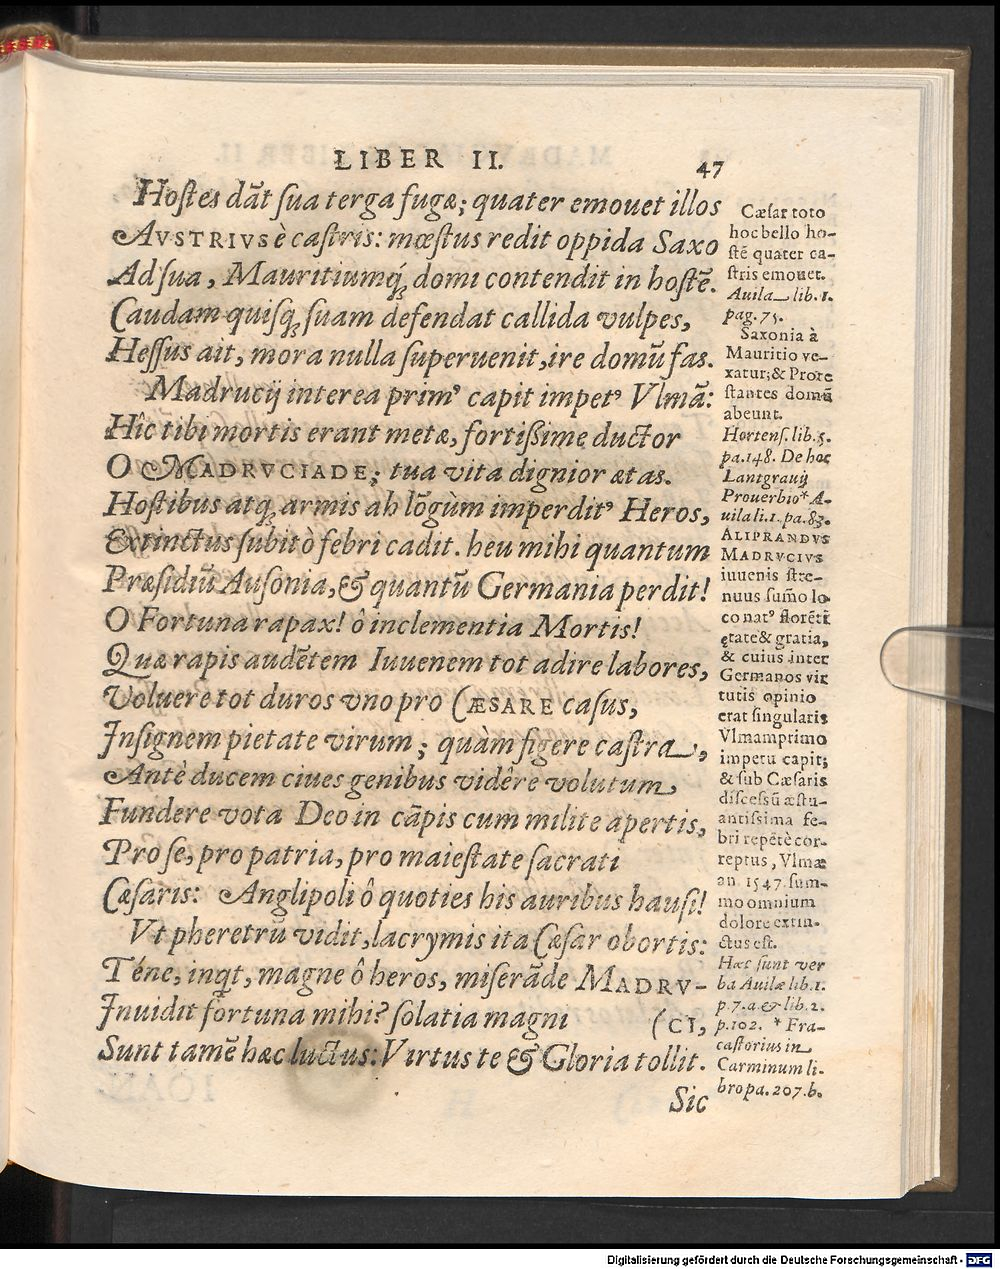 LIBER II. 47
Hostes dãt sua terga fugæ; quater emouet illos
AVSTRIVS è castris: mœstus redit oppida Saxo
Ad sua, Mauritiumq́; domi contendit in hostẽ.
Caudam quisq; suam defendat callida vulpes,
Hessus ait, mora nulla superuenit, ire domũ fas.
Madrucij interea primꝰ capit impetꝰ Vlmã:
Hîc tibi mortis erant metæ, fortißime ductor
O MADRVCIADE; tua vita dignior ætas.
Hostibus atq; armis ah lõgùm imperditꝰ Heros,
Extinctus subitò febri cadit. heu mihi quantum
Præsidiũ Ausonia, & quantũ Germania perdit!
O Fortuna rapax! ô inclementia Mortis!
Quæ rapis audẽtem Iuuenem tot adire labores,
Voluere tot duros vno pro CÆSARE casus,
Insignem pietate virum; quàm figere castra,
Antè ducem ciues genibus vidêre volutum,
Fundere vota Deo in cãpis cum milite apertis,
Pro se, pro patria, pro maiestate sacrati
Cæsaris: Anglipoli ô quoties his auribus hausi!
Vt pheretrũ vidit, lacrymis ita Cæsar obortis:
Téne, inqt, magne ô heros, miserãde MADRV-
Inuidit fortuna mihi? solatia magni (CI,
Sunt tamẽ hæc luctus: Virtus te & Gloria tollit.
Sic
Cæsar toto
hoc bello ho-
stẽ quater ca-
stris emouet.
Auila lib. 1.
pag. 75.
Saxonia à
Mauritio ve-
xatur; & Prote
stantes domũ
abeunt.
Hortens. lib. 5.
pa. 148. De hoc
Lantgrauij
Prouerbio * A-
uila li. 1. pa. 83.
ALIPRANDVS
MADRVCIVS
iuuenis stre-
nuus sum̃o lo
co natꝰ florẽti
ętate & gratia,
& cuius inter
Germanos vir
tutis opinio
erat singularis
Vlmam primo
impetu capit;
& sub Cæsaris
discessũ æstu-
antissima fe-
bri repẽtè cor-
reptus, Vlmæ
an. 1547. sum-
mo omnium
dolore extin-
ctus est.
Hæc sunt ver
ba Auilæ lib. 1.
p. 7. a. & lib. 2.
p. 102. * Fra-
castorius in
Carminum li-
bro pa. 207. b.
Digitalisierung gefördert durch die Deutsche Forschungsgemeinschaft - DFG